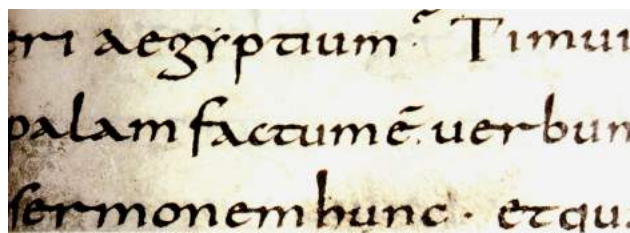 eri aegyptium· Timui
palam factum ē. uerbum
sermonem hunc · et qu